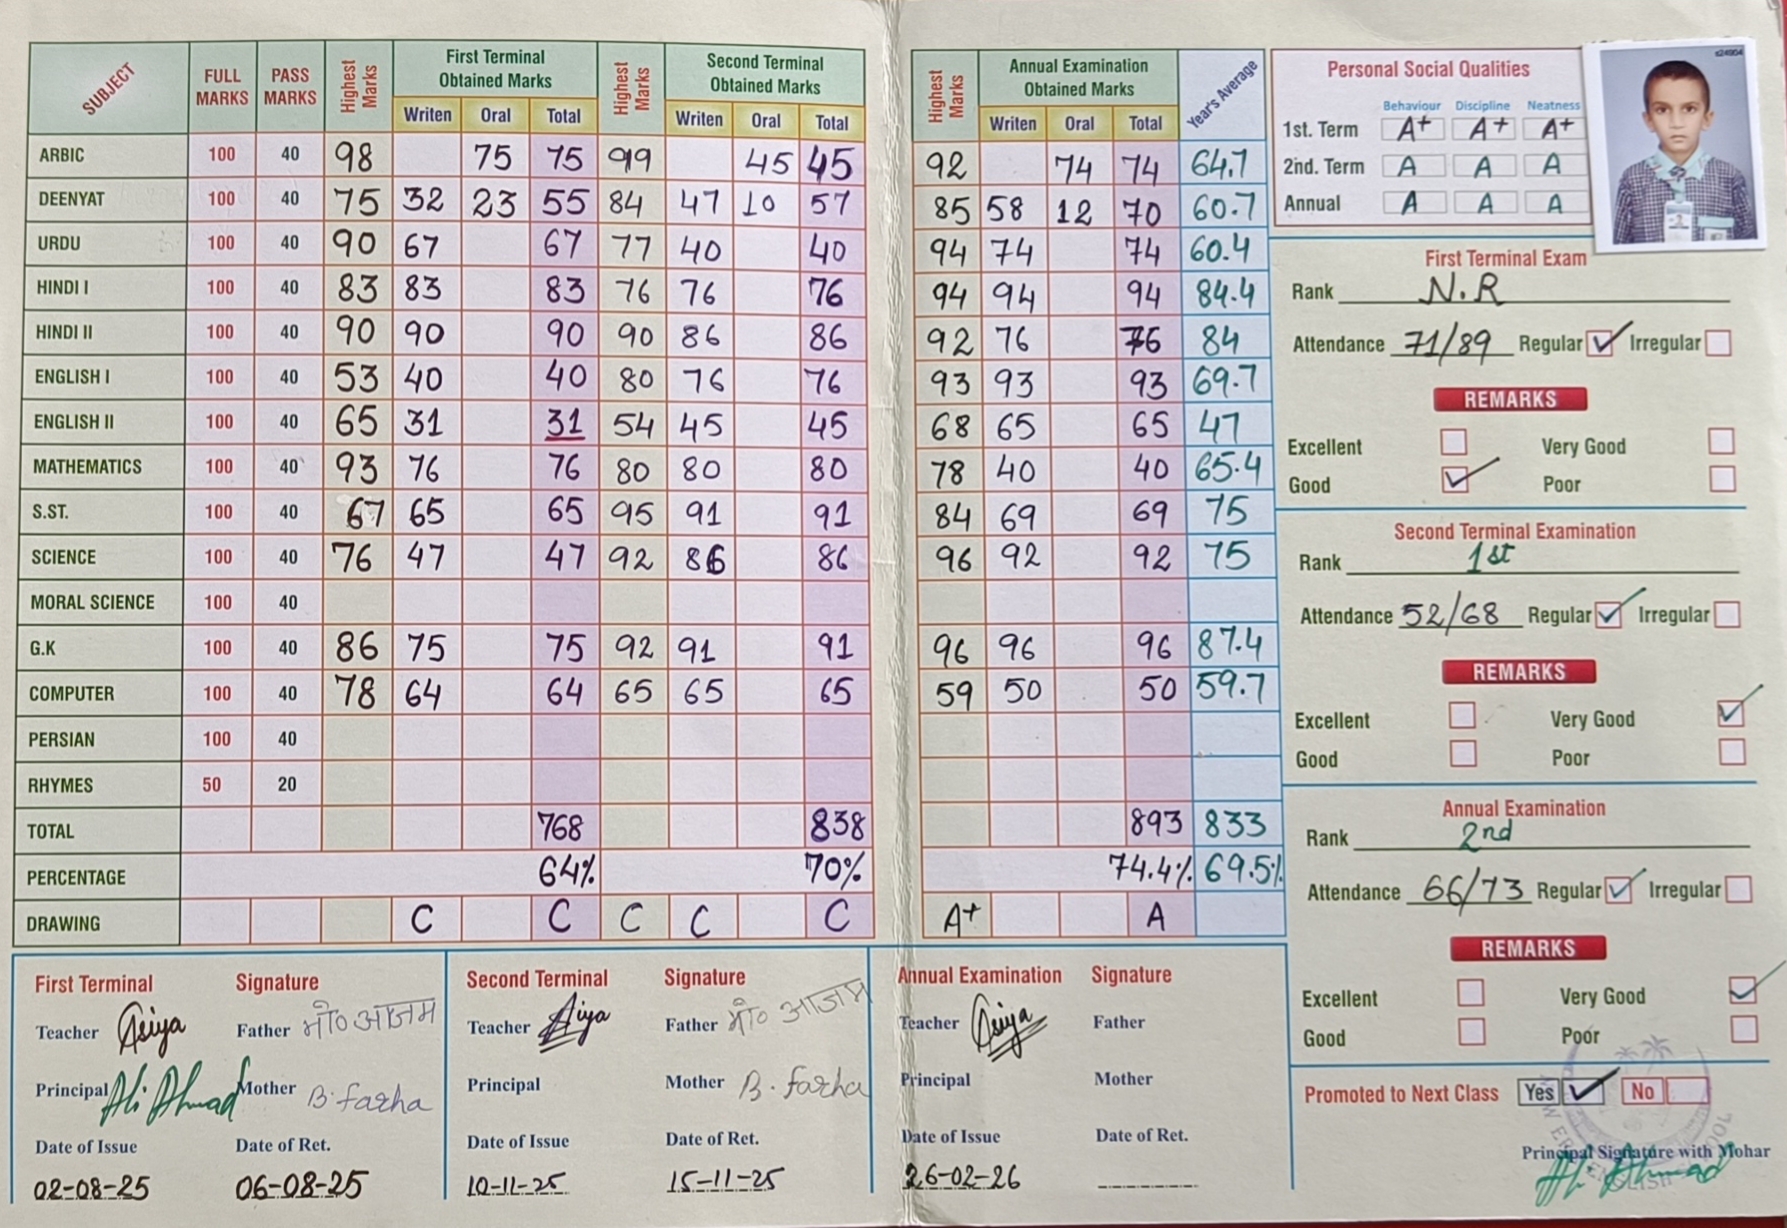 SUBJECT FULL MARKS PASS MARKS Highest Marks First Terminal Obtained Marks Highest Marks Second Terminal Obtained Marks Highest Marks Annual Examination Obtained Marks Year's Average
Writen Oral Total Writen Oral Total Writen Oral Total
ARBIC 100 40 98 75 75 99 45 45 92 74 74 64.7
DEENYAT 100 40 75 32 23 55 84 47 10 57 85 58 12 70 60.7
URDU 100 40 90 67 67 77 40 40 94 74 74 60.4
HINDI I 100 40 83 83 83 76 76 76 94 94 94 84.4
HINDI II 100 40 90 90 90 90 86 86 92 76 76 84
ENGLISH I 100 40 53 40 40 80 76 76 93 93 93 69.7
ENGLISH II 100 40 65 31 31 54 45 45 68 65 65 47
MATHEMATICS 100 40 93 76 76 80 80 80 78 40 40 65.4
S.ST. 100 40 67 65 65 95 91 91 84 69 69 75
SCIENCE 100 40 76 47 47 92 86 86 96 92 92 75
MORAL SCIENCE 100 40
G.K 100 40 86 75 75 92 91 91 96 96 96 87.4
COMPUTER 100 40 78 64 64 65 65 65 59 50 50 59.7
PERSIAN 100 40
RHYMES 50 20
TOTAL 768 838 893 833
PERCENTAGE 64% 70% 74.4% 69.5%
DRAWING C C C C C A+ A
First Terminal Signature
Teacher Asiya Father मो० आजम
Principal Ali Ahmad Mother B. farha
Date of Issue Date of Ret.
02-08-25 06-08-25
Second Terminal Signature
Teacher Father मो० आजम
Principal Mother B. farha
Date of Issue Date of Ret.
10-11-25 15-11-25
Annual Examination Signature
Teacher Asiya Father
Principal Mother
Date of Issue Date of Ret.
26-02-26
Personal Social Qualities
Behaviour Discipline Neatness
1st. Term A+ A+ A+
2nd. Term A A A
Annual A A A
First Terminal Exam
Rank N.R
Attendance 71/89 Regular Irregular
REMARKS
Excellent Very Good
Good Poor
Second Terminal Examination
Rank 1st
Attendance 52/68 Regular Irregular
REMARKS
Excellent Very Good
Good Poor
Annual Examination
Rank 2nd
Attendance 66/73 Regular Irregular
REMARKS
Excellent Very Good
Good Poor
Promoted to Next Class Yes No
Principal Signature with Mohar
Ali Ahmad